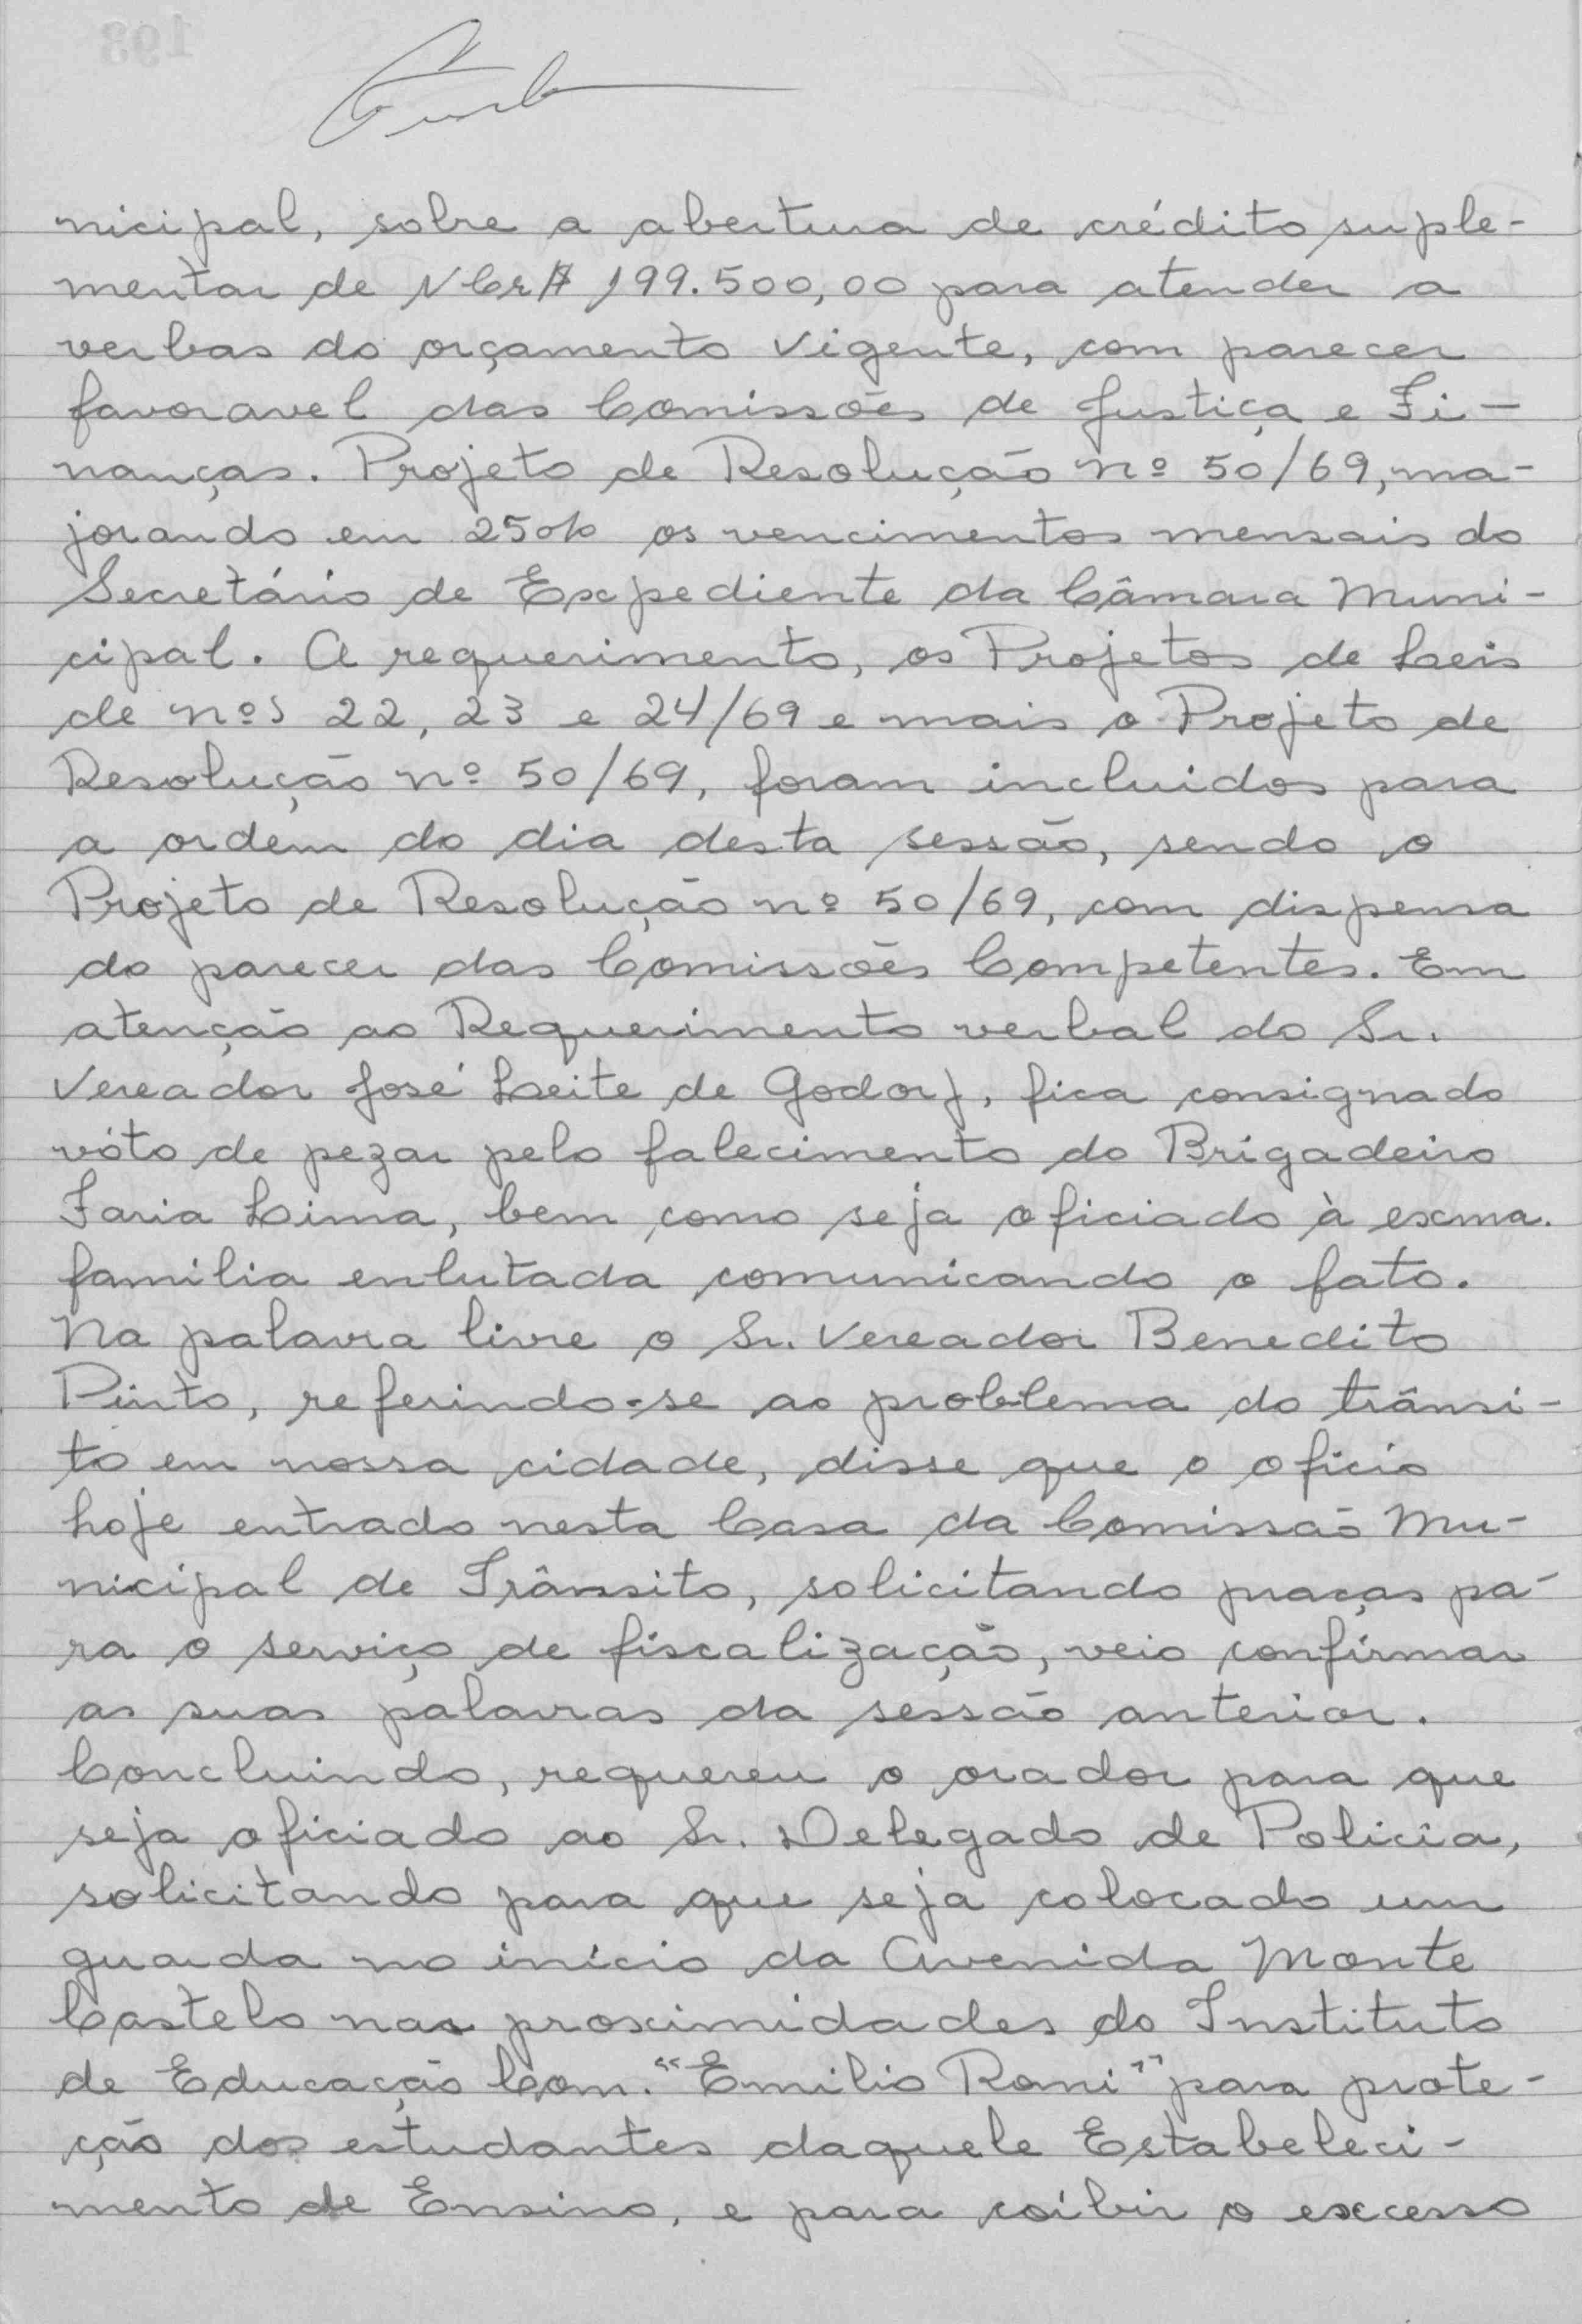 nicipal, sobre a abertura de crédito suple-
mentar de NCr$ 199.500,00 para atender a
verbas do orçamento vigente, com parecer
favoravel das Comissões de Justiça e Fi-
nanças. Projeto de Resolução nº 50/69, ma-
jorando em 25% os vencimentos mensais do
Secretário de Expediente da Câmara Muni-
cipal. A requerimento, os Projetos de Leis
de nºs 22, 23 e 24/69 e mais o Projeto de
Resolução nº 50/69, foram incluidos para
a ordem do dia desta sessão, sendo o
Projeto de Resolução nº 50/69, com dispensa
do parecer das Comissões Competentes. Em
atenção ao Requerimento verbal do Sr.
Vereador José Leite de Godoy, fica consignado
vóto de pezar pelo falecimento do Brigadeiro
Faria Lima, bem como seja oficiado à exma.
familia enlutada comunicando o fato.
Na palavra livre o Sr. Vereador Benedito
Pinto, referindo-se ao problema do trânsi-
to em nossa cidade, disse que o oficio
hoje entrado nesta Casa da Comissão Mu-
nicipal de Trânsito, solicitando praças pa-
ra o serviço de fiscalização, veio confirmar
as suas palavras da sessão anterior.
Concluindo, requereu o orador para que
seja oficiado ao Sr. Delegado de Policia,
solicitando para que seja colocado um
guarda no inicio da Avenida Monte
Castelo nas proximidades do Instituto
de Educação Com. "Emilio Romi" para prote-
ção dos estudantes daquele Estabeleci-
mento de Ensino, e para coibir o excesso